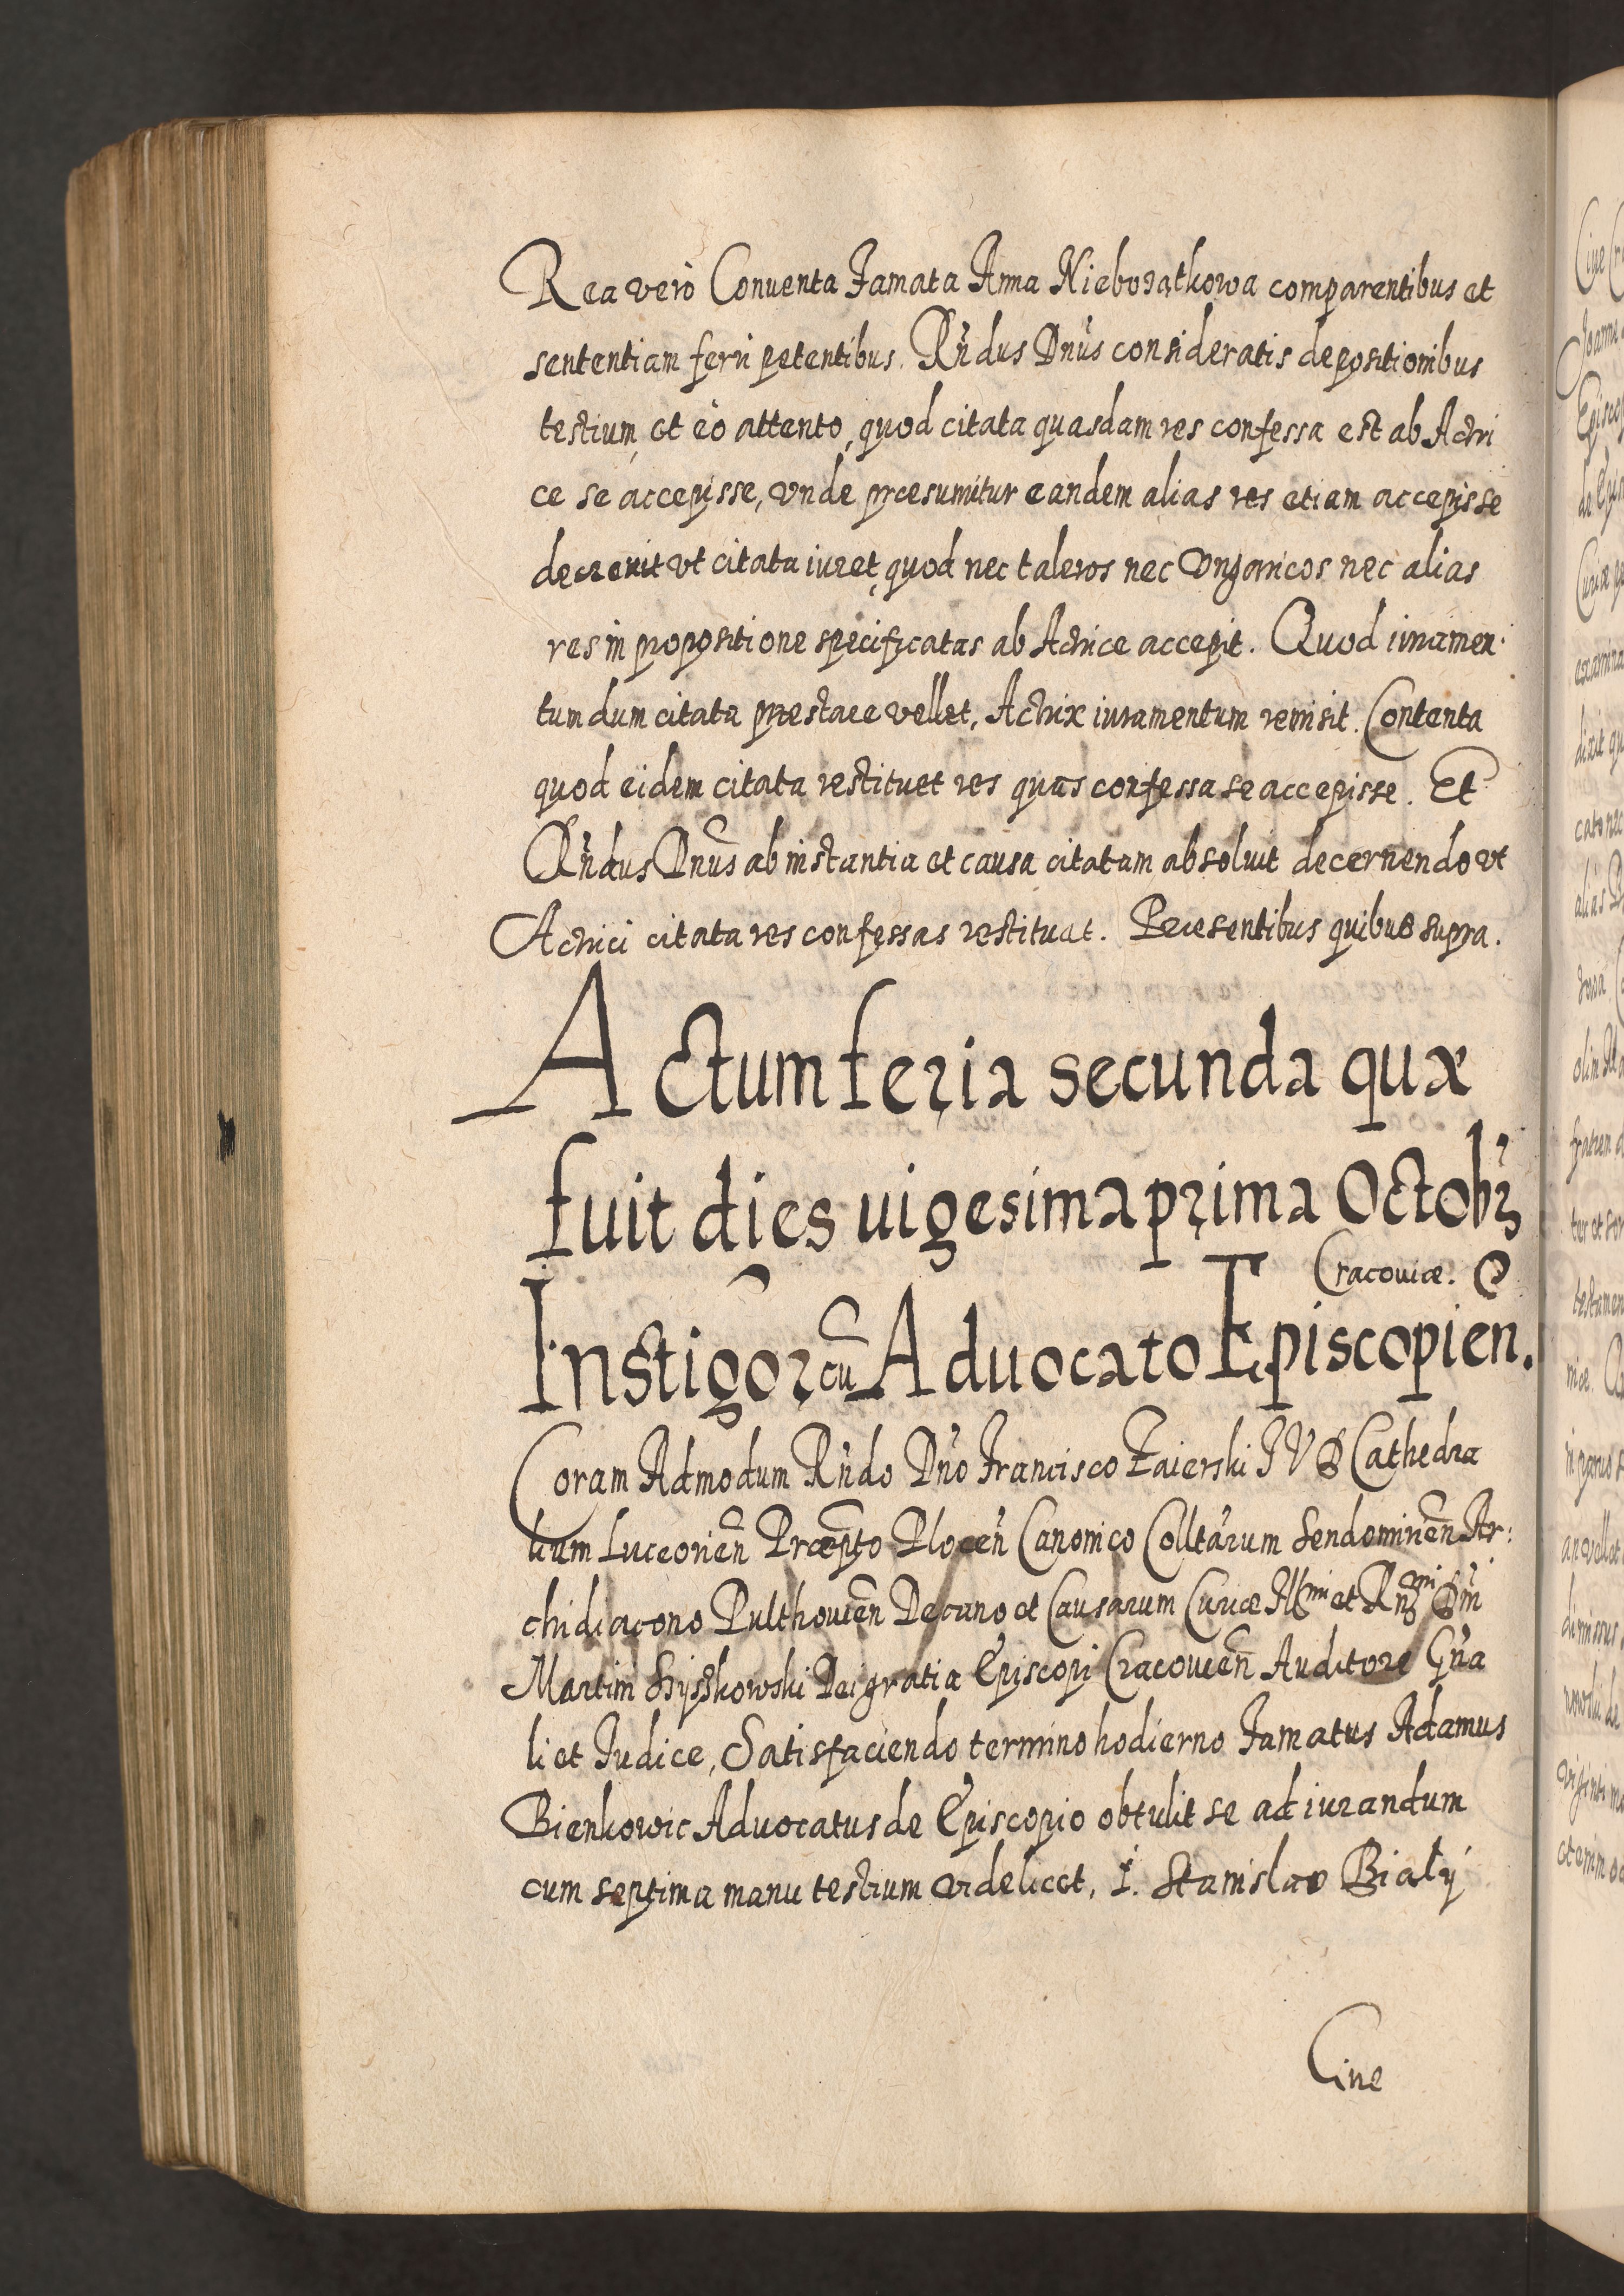 Rea verò Conuenta Famata Anna Nieborątkowa comparentibus et
sententiam ferri petentibus. Rńdus Dnús consideratis depositionibus
testium, et eò attento, quod citata quasdam res confessa est ab Actri
ce se accepisse, vnde præsumitur eandem alias res etiam accepisse
decreuit vt citata iuret, quod nec taleros nec Vngaricos nec alias
res in propositione specificatas ab Actrice accepit. Quod iuramen-
tum dum citata præstare vellet, Actrix iuramentum remisit. Contenta
quod eidem citata restituet res quas confessa se accepisse. Et
Rńdus Dnús ab instantia et causa citatam absoluit decernendo vt
Actrici citata res confessas restituat. Præsentibus quibus supra.
Actum feria secunda quæ
fuit dies uigesima prima Octobŕ
Cracouiæ.
Instigor̃ cũ Aduocato Episcopień.
Coram Admodum Rńdo Dńo Francisco Zaierski IVD Cathedra
lium Luceorień Præpto Plocen̄ Canonico Colltárum Sendomirień Ar:
chidiacono Pulthouień Decano et Causarum Curiæ Illmi et Rńdmi Dńi
Martini Szyszkowski Dei gratia Episcopi Cracouień Auditore Gńa
li et Iudice, Satisfaciendo termino hodierno Famatus Adamus
Bienkowic Aduocatus de Episcopio obtulit se ad iurandum
cum septima manu testium videlicet, 1. Stanislao Biały
Ciue
Ciue
Joanne